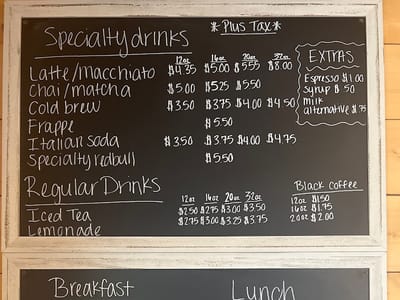 *Plus Tax*
Specialty drinks
12oz 16oz 20oz 32oz
Latte/macchiato $4.35 $5.00 $5.55 $8.00
Chai/matcha $5.00 $5.25 $5.50
Cold brew $3.50 $3.75 $4.00 $4.50
Frappe $5.50
Italian soda $3.50 $3.75 $4.00 $4.75
Specialty redbull $5.50
EXTRAS
Espresso $1.00
Syrup $.50
milk
alternative $.75
Regular Drinks
12oz 16oz 20oz 32oz
Iced Tea $2.50 $2.75 $3.00 $3.50
Lemonade $2.75 $3.00 $3.25 $3.75
Black coffee
12oz $1.50
16oz $1.75
20oz $2.00
Breakfast
Lunch